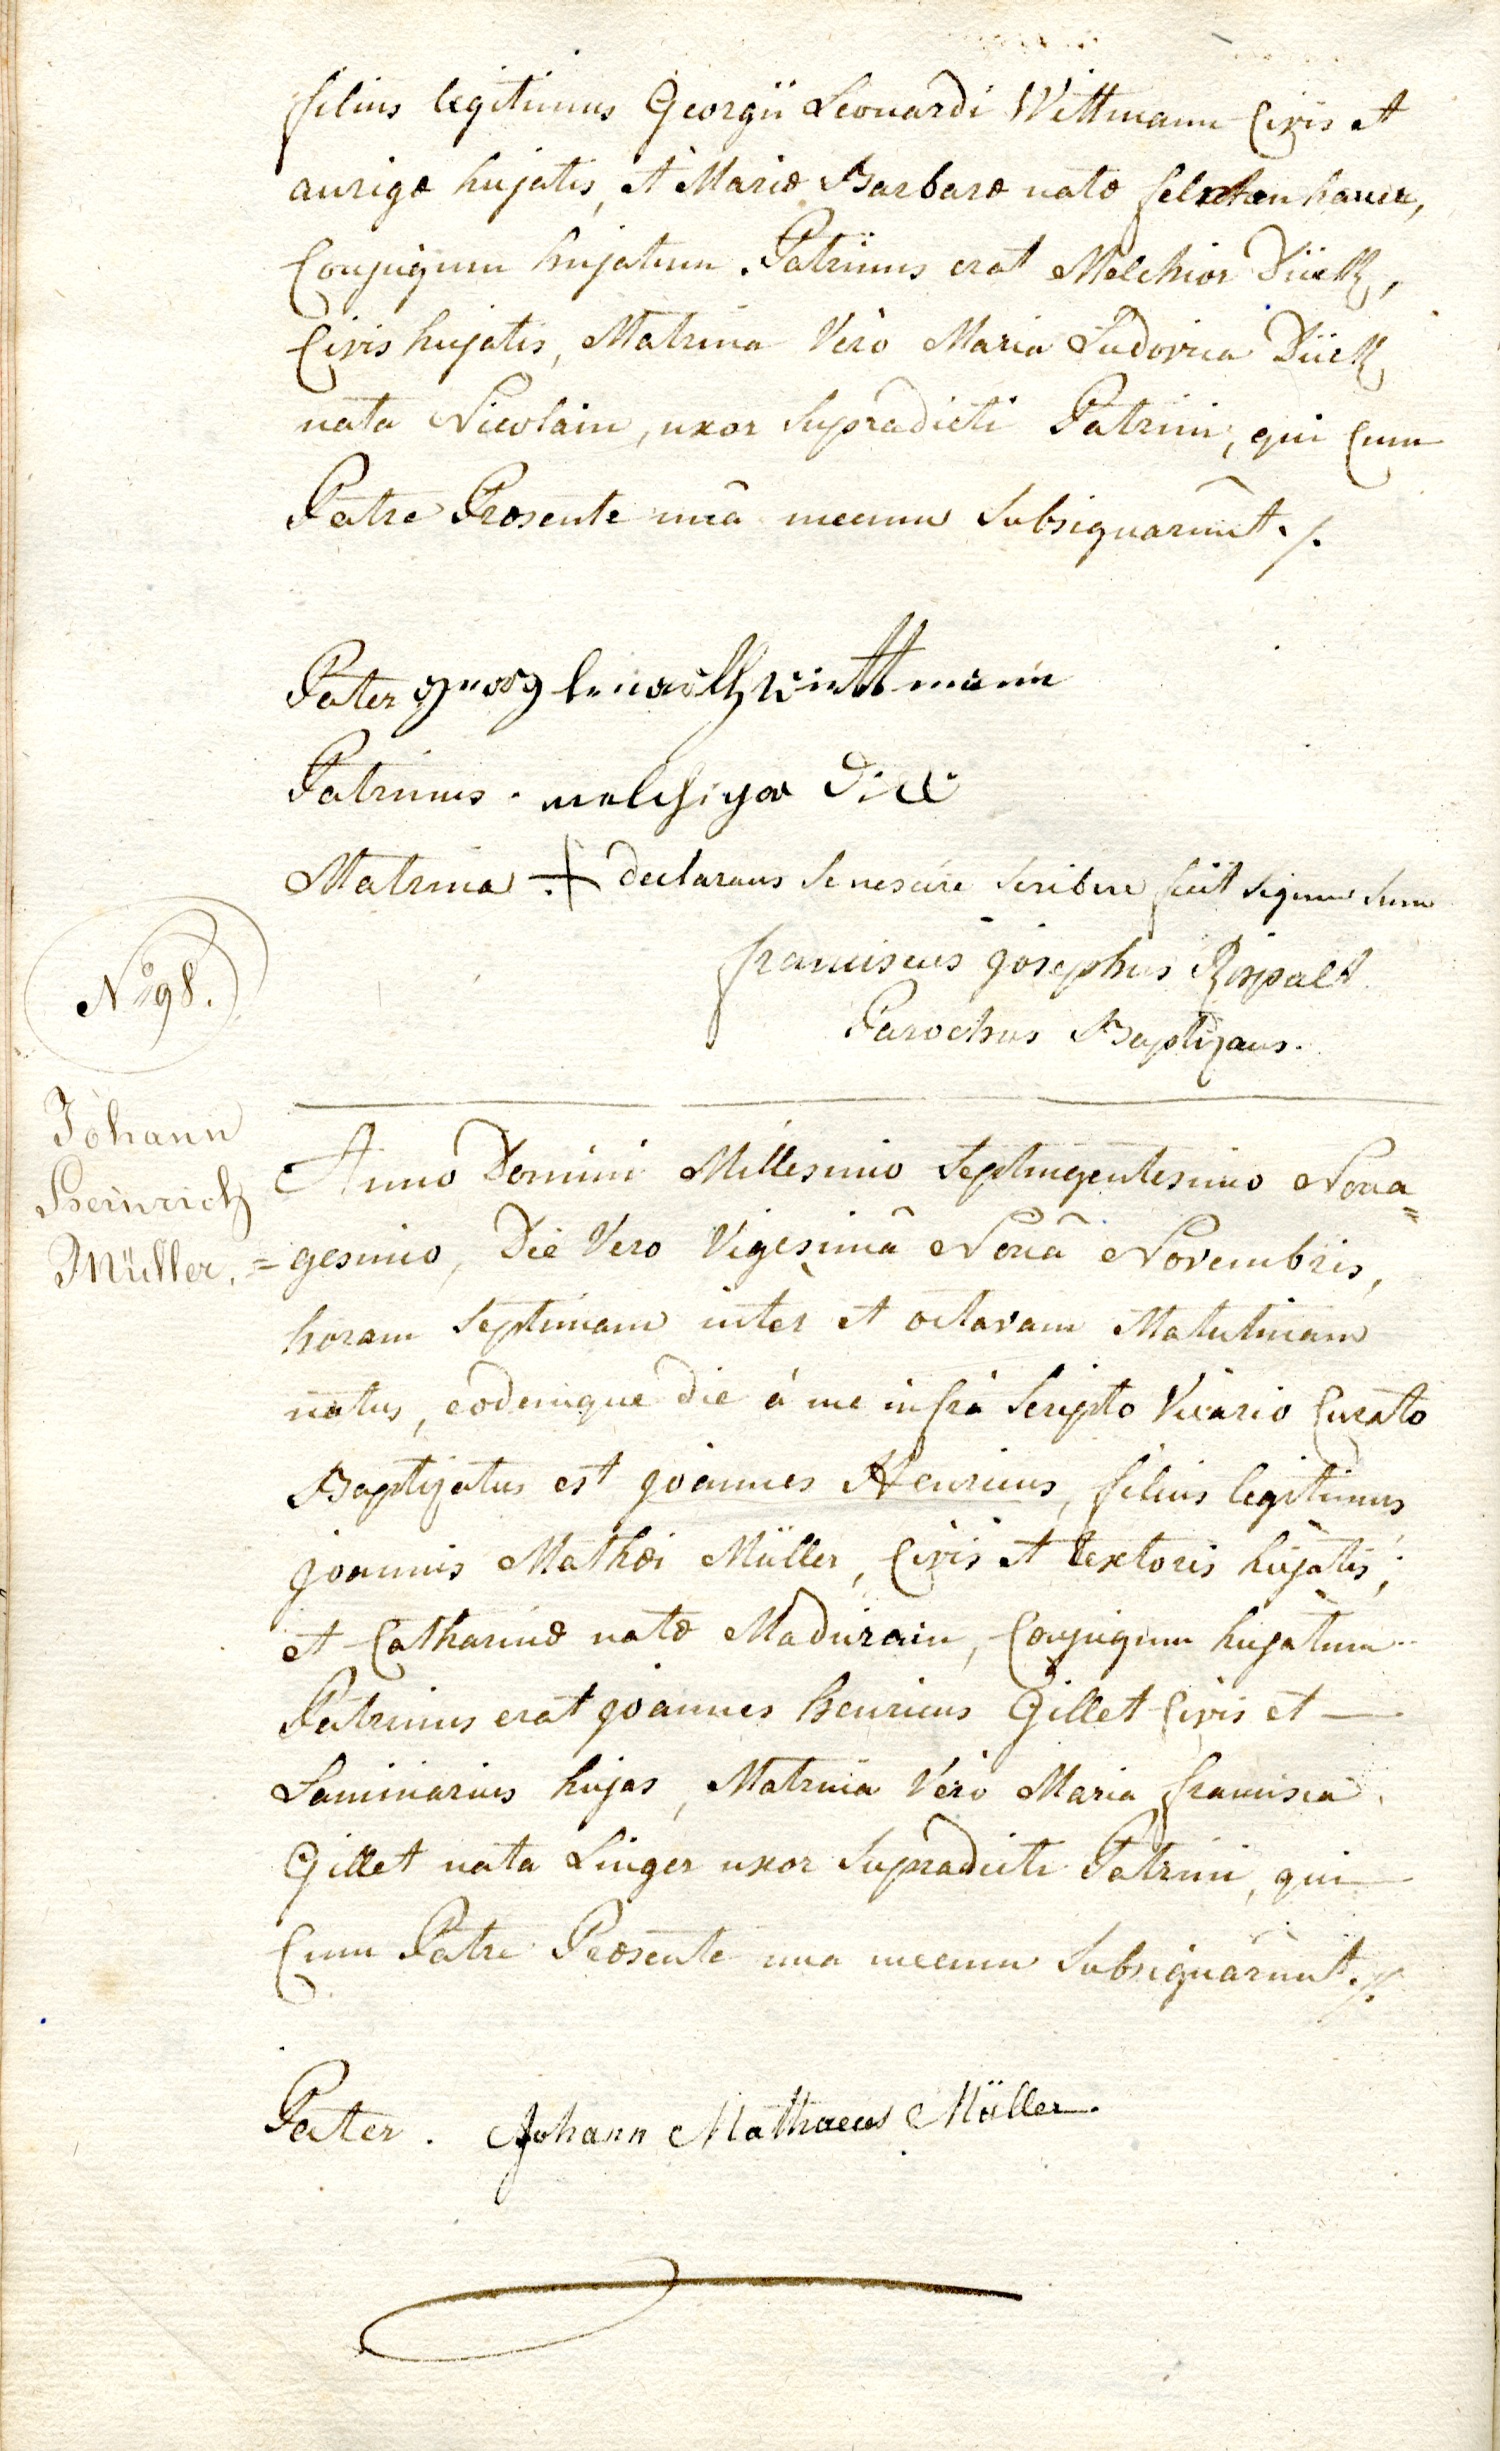 filius legitimus Georgii Leonardi Wittmann Civis et
aurigæ hujatis, et Mariæ Barbaræ natæ
Conjugum hujatum. Patrinus erat Melchior Dück,
Civis hujatis, Matrina Vero Maria Ludovica Dück
nata Nicolain, uxor Supradicti Patrini, qui Cum
Patre Præsente unâ mecum Subsignarunt ./.
Pater georg lenardt wittmann
Patrinus . melchior Dick
Matrina + declarans Se nescire Scribere fecit Signum Suum
franciscus Josephus Rispalt
Parochus Baptizans.
No 98.
Johann
Heinrich
Müller.
Anno Domini Millesimo Septingentesimo Nona=
=gesimo, Die Vero Vigesimâ Nonâ Novembris,
horam Septimam inter et octavam Matutinam
natus, eodemque die à me infrà Scripto Vicario Curato
Baptizatus est Joannes Henricus, filius legitimus
Joannis Mathæi Müller, Civis et textoris hujatis,
et Catharinæ natæ Madurain, Conjugum hujatum
Patrinus erat Joannes henricus Gillet Civis et —
Laminarius hujas, Matrina Vero Maria francisca
Gillet nata Linger uxor Supradicti Patrini, qui
Cum Patre Præsente una mecum Subsignarunt ./.
Pater. Johann Mathaeus Müller.